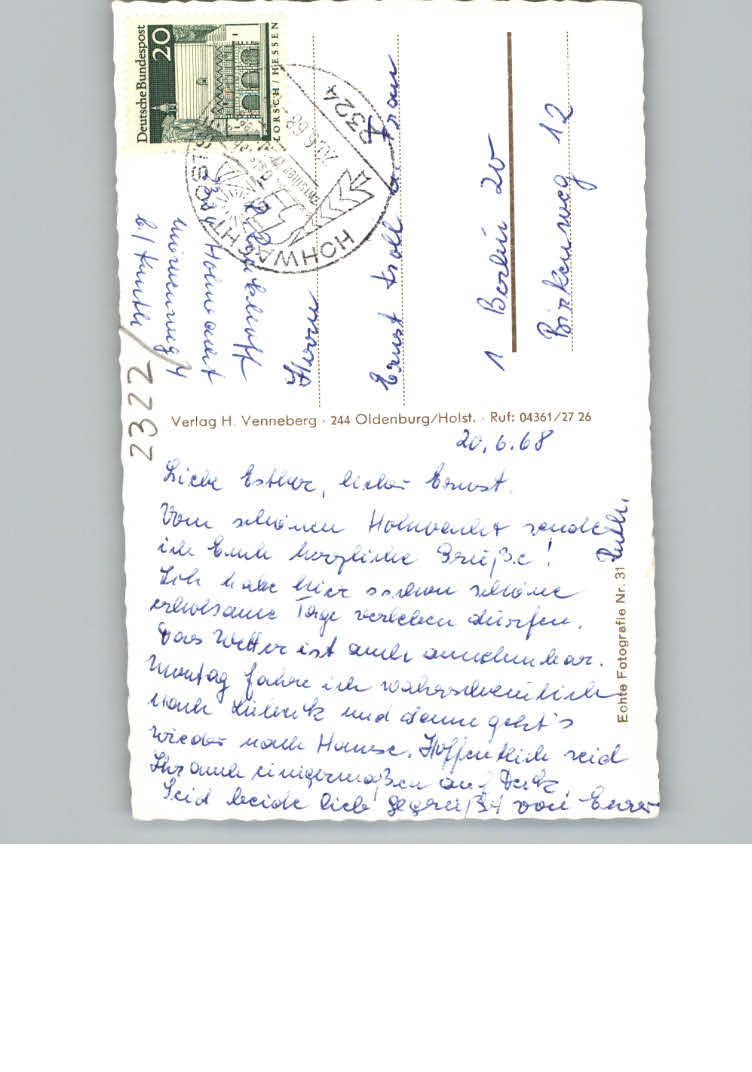 Deutsche Bundespost
20
LORSCH / HESSEN
HOHWACHT OSTSEE
20.6.68
2324
2324 Hohwacht
Möwenweg 4
b/Kunth
2322
Herrn
Ernst Kroll u. Frau
1 Berlin 20
Birkenweg 12
Verlag H. Venneberg · 244 Oldenburg/Holst. · Ruf: 04361/27 26
20.6.68
Liebe Esther, lieber Ernst.
Vom schönen Hohwacht sende
ich Euch herzliche Grüße!
Ich habe hier schon schöne
erholsame Tage verleben dürfen.
Das Wetter ist auch annehmbar.
Montag fahre ich wahrscheinlich
nach Lübeck und dann geht's
wieder nach Hause. Hoffentlich seid
Ihr auch einigermaßen auf Deck.
Seid beide lieb gegrüßt von Eurer
Ruth.
Echte Fotografie Nr. 31